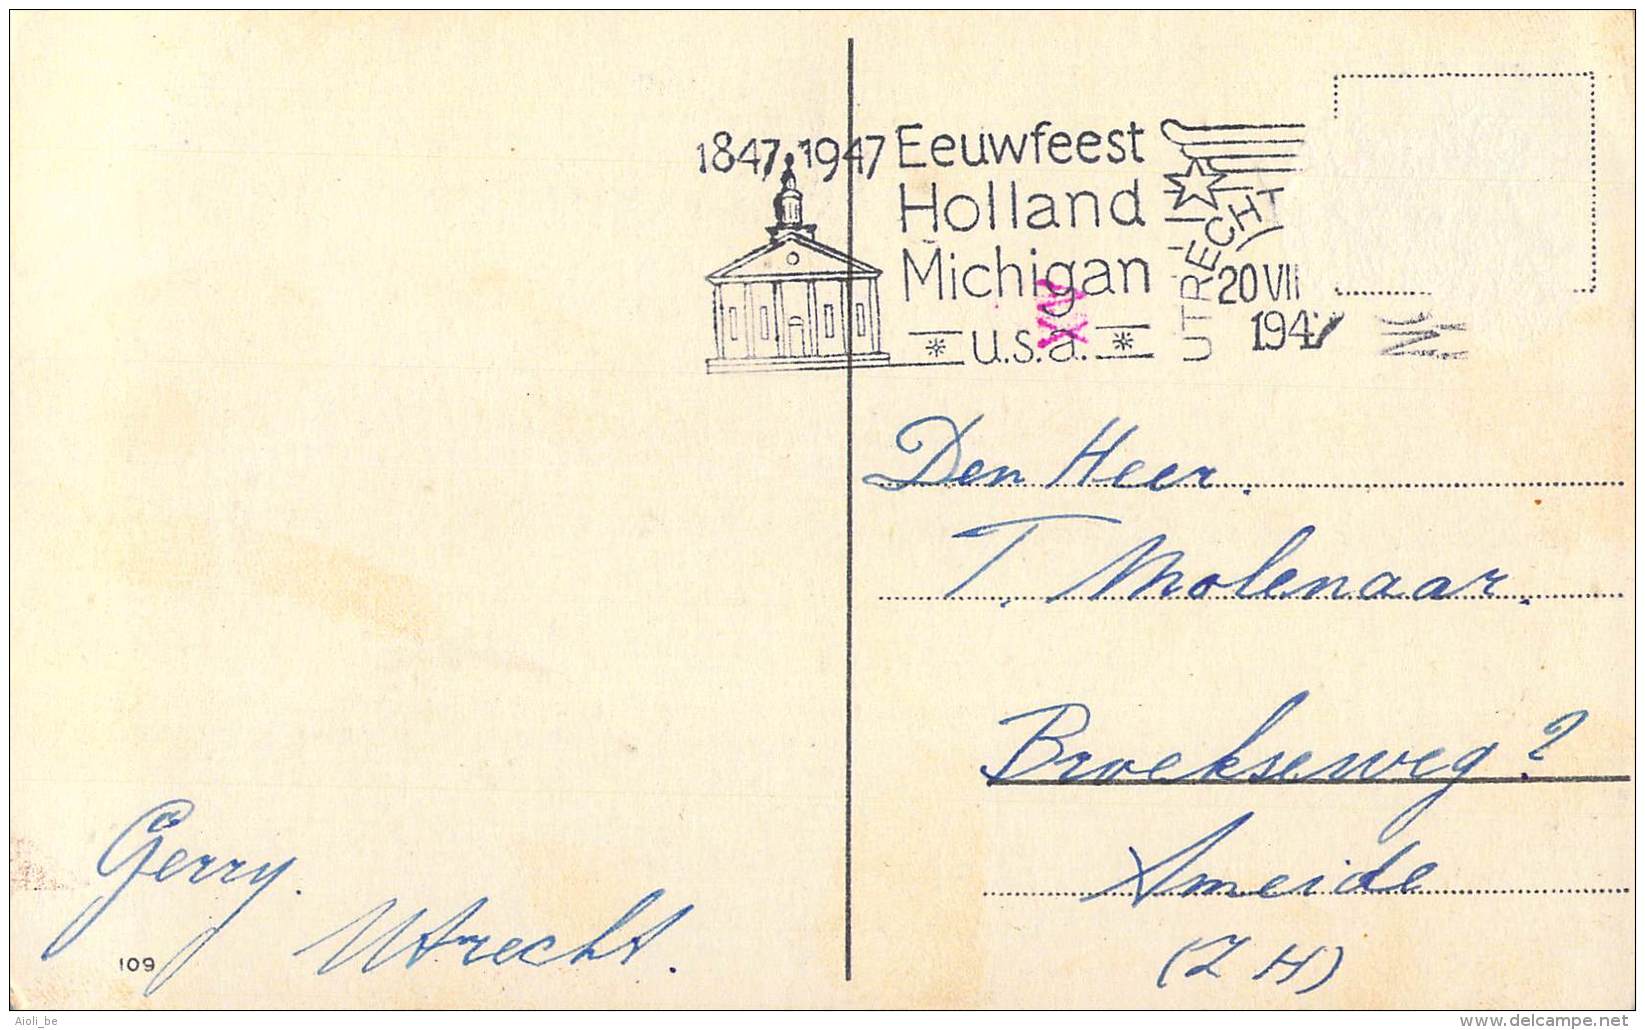 1847 1947 Eeuwfeest
Holland
Michigan
u.s.a.
UTRECHT
20 VII
1947
Den Heer.
T. Molenaar.
Broekseweg ?
Ameide
(Z H)
Gerry.
Utrecht.
109
Aioli_be
delcampe.net